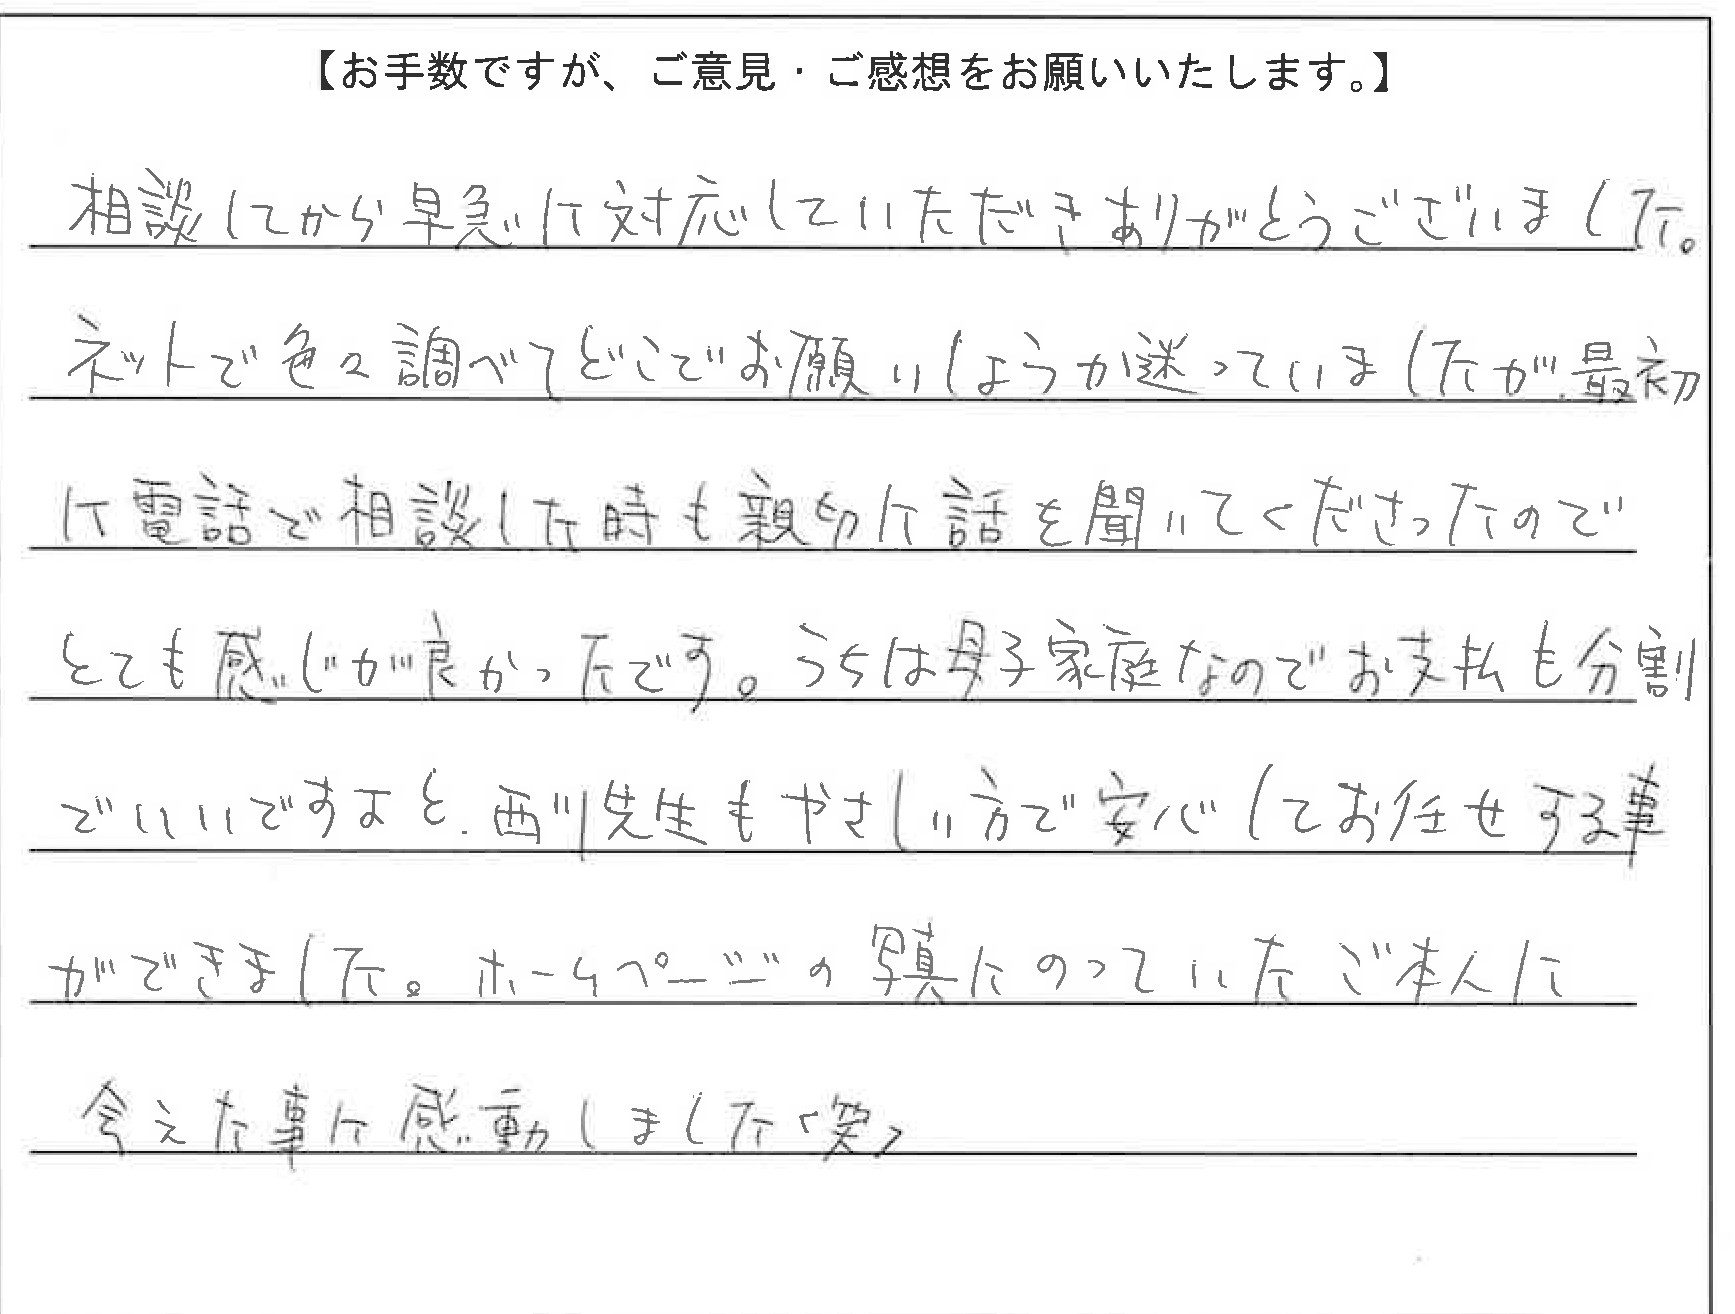 【お手数ですが、ご意見・ご感想をお願いいたします。】
相談してから早急に対応していただきありがとうございました。
ネットで色々調べてどこでお願いしようか迷っていましたが、最初
に電話で相談した時も親切に話を聞いてくださったので
とても感じが良かったです。うちは母子家庭なのでお支払も分割
でいいですよと、西川先生もやさしい方で安心してお任せする事
ができました。ホームページの写真にのっていたご本人に
会えた事に感動しました(笑)